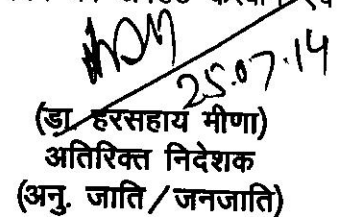 25.07.14
(डा. हरसहाय मीणा)
अतिरिक्त निदेशक
(अनु. जाति / जनजाति)